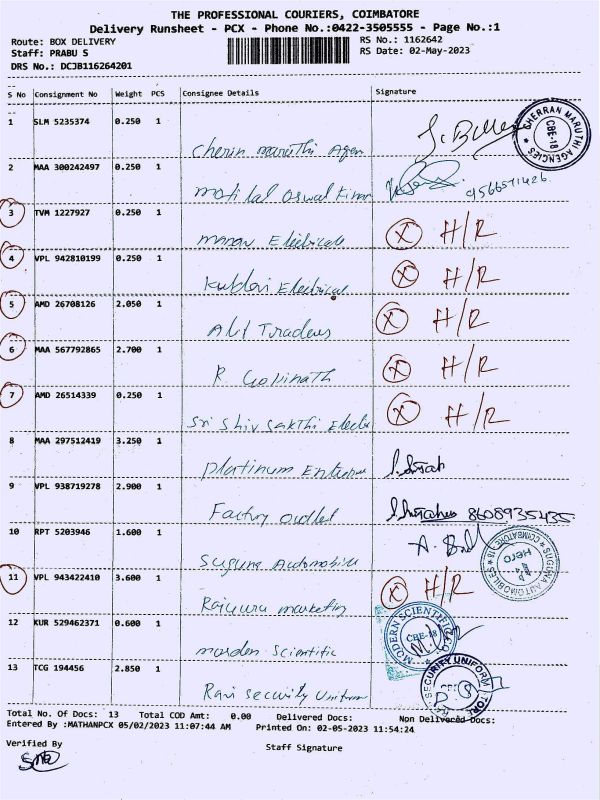 THE PROFESSIONAL COURIERS, COIMBATORE
Delivery Runsheet - PCX - Phone No.:0422-3505555 - Page No.:1
Route: BOX DELIVERY RS No.: 1162642
Staff: PRABU S RS Date: 02-May-2023
DRS No.: DCJB116264201
S No Consignment No Weight PCS Consignee Details Signature
1 SLM 5235374 0.250 1
Cherin maruthi Agen
CHERRAN MARUTHI AGENCIES CBE-18
2 MAA 300242497 0.250 1
motilal oswal Finan 9566571426
3 TVM 1227927 0.250 1
Electricals X H/R
4 VPL 942810199 0.250 1
Electrical X H/R
5 AMD 26708126 2.050 1
Traders X H/R
6 MAA 567792865 2.700 1
R. Gopinath X H/R
7 AMD 26514339 0.250 1
Sri Shiv Sakthi Electri X H/R
8 MAA 297512419 3.250 1
Platinum
9 VPL 938719278 2.900 1
Factory outlet 8608935435
10 RPT 5203946 1.600 1
Suguna Automobile
SUGUNA AUTOMOBILES COIMBATORE Hero
11 VPL 943422410 3.600 1
marketing X H/R
12 KUR 529462371 0.600 1
morden Scientific
MODERN SCIENTIFIC CO. CBE-18
13 TCG 194456 2.850 1
Ravi security Uniform
SECURITY UNIFORM
Total No. Of Docs: 13 Total COD Amt: 0.00 Delivered Docs: Non Delivered Docs:
Entered By :MATHANPCX 05/02/2023 11:07:44 AM Printed On: 02-05-2023 11:54:24
Verified By Staff Signature